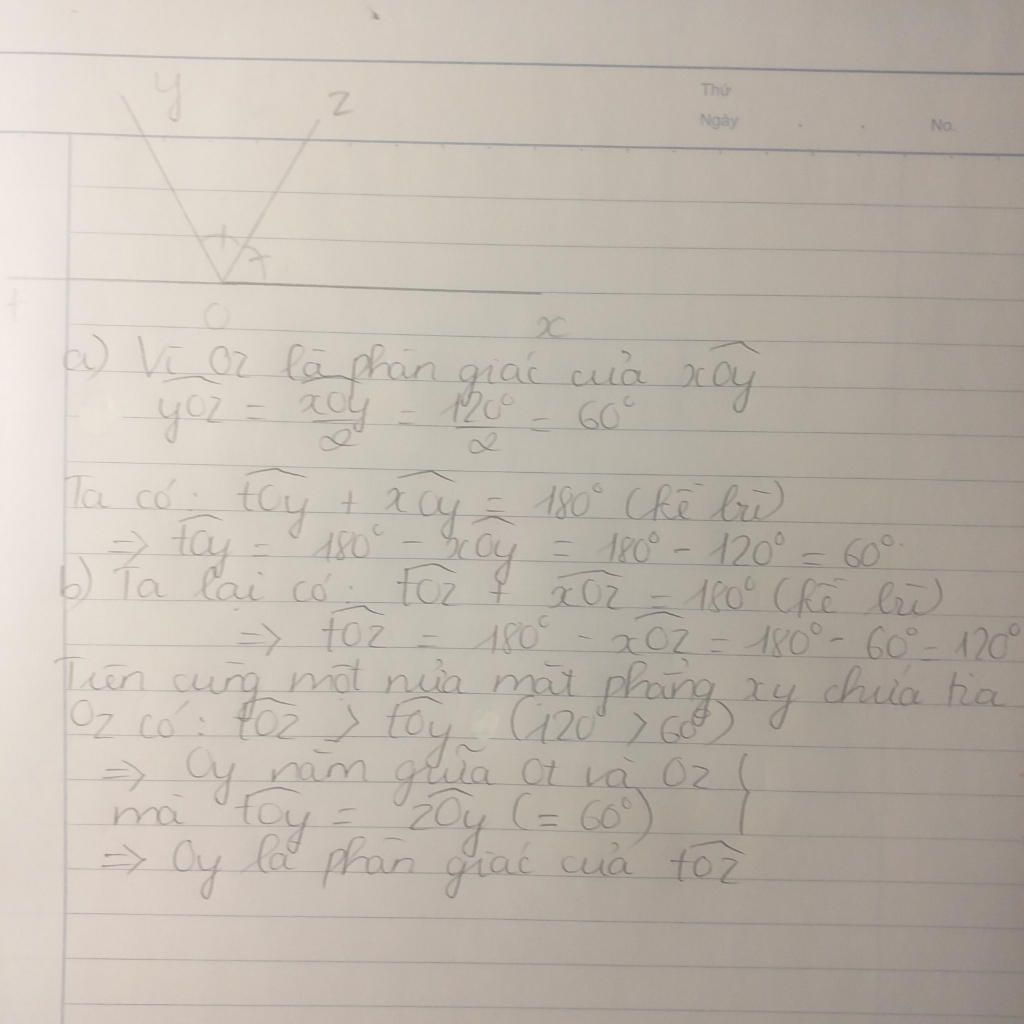 y
z
Thứ
Ngày
No.
t
O
x
a) Vì Oz là phân giác của xOy
yOz = xOy/2 = 120°/2 = 60°
Ta có: tOy + xOy = 180° (kề bù)
=> tOy = 180° - xOy = 180° - 120° = 60°
b) Ta lại có: tOz + xOz = 180° (kề bù)
=> tOz = 180° - xOz = 180° - 60° = 120°
Trên cùng một nửa mặt phẳng xy chứa tia
Oz có: tOz > tOy (120° > 60°)
=> Oy nằm giữa Ot và Oz
mà tOy = zOy (= 60°)
=> Oy là phân giác của tOz